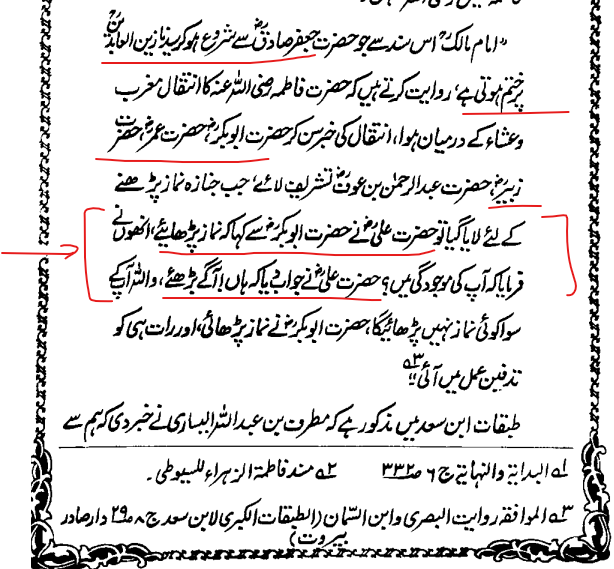 "امام مالکؒ اس سند سے جو حضرت جعفر صادقؓ سے شروع ہو کر سیدنا زین العابدینؓ
پر ختم ہوتی ہے، روایت کرتے ہیں کہ حضرت فاطمہ رضی اللہ عنہ کا انتقال مغرب
و عشاء کے درمیان ہوا، انتقال کی خبر سن کر حضرت ابوبکرؓ، حضرت عمرؓ، حضرت
زبیرؓ، حضرت عبدالرحمٰن بن عوفؓ تشریف لائے، جب جنازہ نماز پڑھنے
کے لئے لایا گیا تو حضرت علیؓ نے حضرت ابوبکرؓ سے کہا کہ نماز پڑھایئے، انھوں نے
فرمایا کہ آپ کی موجودگی میں؟ حضرت علیؓ نے جواب دیا کہ ہاں! آگے بڑھئے، واللہ آپ کے
سوا کوئی نماز نہیں پڑھائیگا، حضرت ابوبکرؓ نے نماز پڑھائی، اور رات ہی کو
تدفین عمل میں آئی ؎۳"
طبقات ابن سعد میں مذکور ہے کہ مطرف بن عبداللہ الیساری نے خبر دی کہ ہم سے
؎۱ البدایۃ والنہایۃ ج ۶ ص۳۳۲ ؎۲ مسند فاطمۃ الزہراء للسیوطی۔
؎۳ الموافقہ روایت البصری وابن السّمان (الطبقات الکبری لابن سعد ج ۸ ص۲۹ دار صادر
بیروت)